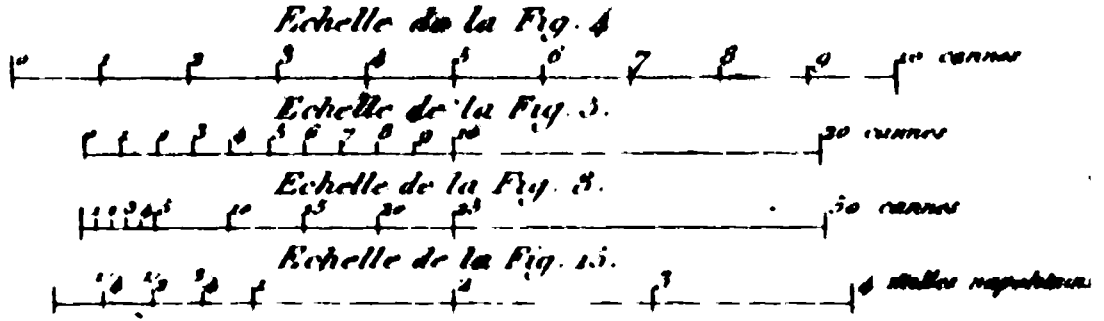 Echelle de la Fig. 4
0 1 2 3 4 5 6 7 8 9 10 cannes
Echelle de la Fig. 5.
0 1 2 3 4 5 6 7 8 9 10 20 cannes
Echelle de la Fig. 8.
1 2 3 4 5 10 15 20 25 50 cannes
Echelle de la Fig. 15.
1/4 1/2 3/4 1 2 3 4 milles napolitains